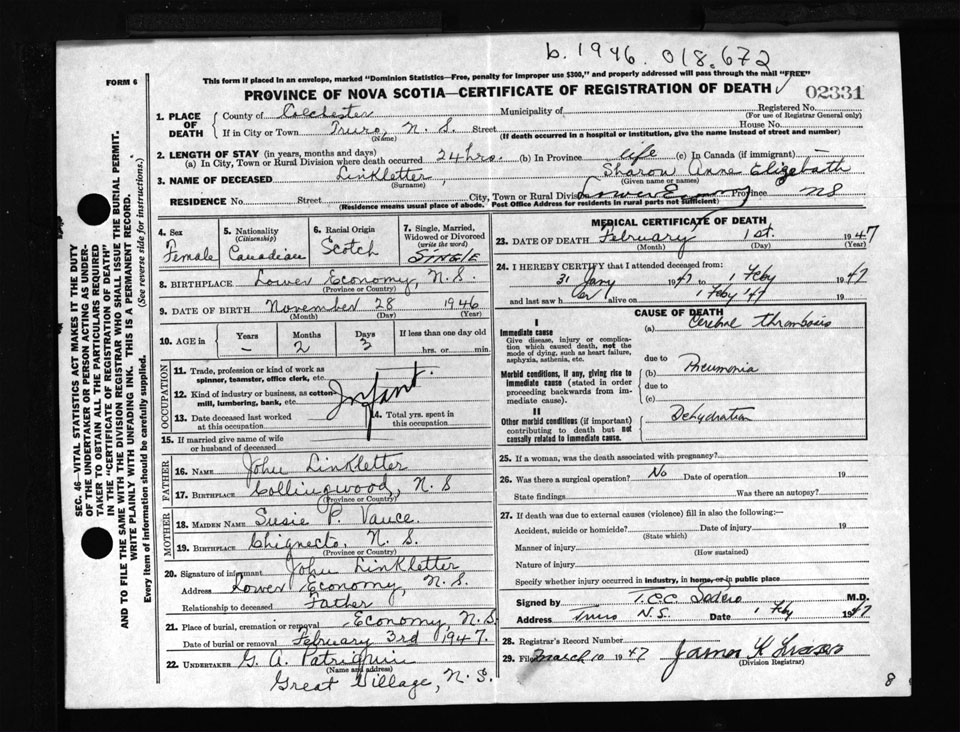 b. 1946. 018.672
FORM 6
This form if placed in an envelope, marked "Dominion Statistics—Free, penalty for improper use $300," and properly addressed will pass through the mail "FREE"
PROVINCE OF NOVA SCOTIA—CERTIFICATE OF REGISTRATION OF DEATH
02331
1. PLACE OF DEATH
County of Colchester Municipality of Registered No.
(For use of Registrar General only)
If in City or Town Truro, N. S. Street House No.
(Name) (If death occurred in a hospital or institution, give the name instead of street and number)
2. LENGTH OF STAY (in years, months and days)
(a) In City, Town or Rural Division where death occurred 24 hrs. (b) In Province life (c) In Canada (if immigrant) —
3. NAME OF DECEASED Linkletter, Sharon Anne Elizabeth
(Surname) (Given name or names)
RESIDENCE No. Street City, Town or Rural Division Lower Economy Province NS
(Residence means usual place of abode. Post Office Address for residents in rural parts not sufficient)
4. Sex Female
5. Nationality (Citizenship) Canadian
6. Racial Origin Scotch
7. Single, Married, Widowed or Divorced (write the word) SINGLE
8. BIRTHPLACE Lower Economy, N. S.
(Province or Country)
9. DATE OF BIRTH November 28 1946
(Month) (Day) (Year)
10. AGE in Years — Months 2 Days 3 If less than one day old hrs. or min.
OCCUPATION
11. Trade, profession or kind of work as spinner, teamster, office clerk, etc.
12. Kind of industry or business, as cotton-mill, lumbering, bank, etc.
Infant.
13. Date deceased last worked at this occupation
14. Total yrs. spent in this occupation
15. If married give name of wife or husband of deceased
FATHER
16. NAME John Linkletter
17. BIRTHPLACE Collingwood, N. S
(Province or Country)
MOTHER
18. MAIDEN NAME Susie P. Vance.
19. BIRTHPLACE Chignecto, N. S.
(Province or Country)
20. Signature of informant John Linkletter
Address Lower Economy, N. S.
Relationship to deceased Father
21. Place of burial, cremation or removal Economy, N. S.
Date of burial or removal February 3rd 1947.
22. UNDERTAKER G. A. Patriquin
(Name and address)
Great Village, N. S.
MEDICAL CERTIFICATE OF DEATH
23. DATE OF DEATH February 1st. 1947
(Month) (Day) (Year)
24. I HEREBY CERTIFY that I attended deceased from:
31 Jany 1947 to 1 Feby 1947
and last saw her alive on 1 Feby '47 19
CAUSE OF DEATH
I
Immediate cause
Give disease, injury or complication which caused death, not the mode of dying, such as heart failure, asphyxia, asthenia, etc.
(a) Cerebral thrombosis
due to
Morbid conditions, if any, giving rise to immediate cause (stated in order proceeding backwards from immediate cause).
(b) Pneumonia
due to
(c)
II
Other morbid conditions (if important) contributing to death but not causally related to immediate cause.
Dehydration
25. If a woman, was the death associated with pregnancy?
26. Was there a surgical operation? No Date of operation 19
State findings Was there an autopsy?
27. If death was due to external causes (violence) fill in also the following:—
Accident, suicide or homicide? Date of injury 19
(State which)
Manner of injury
(How sustained)
Nature of injury
Specify whether injury occurred in industry, in home, or in public place
Signed by T.C.C. M.D.
Address Truro N.S. Date 1 Feby 1947
28. Registrar's Record Number
29. Filed March 10 1947 James K
(Division Registrar)
8
SEC. 46—VITAL STATISTICS ACT MAKES IT THE DUTY
OF THE UNDERTAKER OR PERSON ACTING AS UNDER-
TAKER TO OBTAIN ALL THE PARTICULARS REQUIRED
IN THE "CERTIFICATE OF REGISTRATION OF DEATH"
AND TO FILE THE SAME WITH THE DIVISION REGISTRAR WHO SHALL ISSUE THE BURIAL PERMIT.
WRITE PLAINLY WITH UNFADING INK. THIS IS A PERMANENT RECORD.
Every item of information should be carefully supplied. (See reverse side for instructions.)